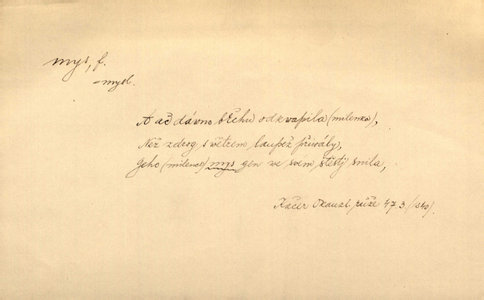 mys, f.
= mysl.
A ač dávno břehu odkvapila (milenka),
Než zdesg s větrem, laupež přivály,
Geho (milence) mys gen ve svém štěstj snila,
Kačer Okauzl. růže 47. 3. (840).